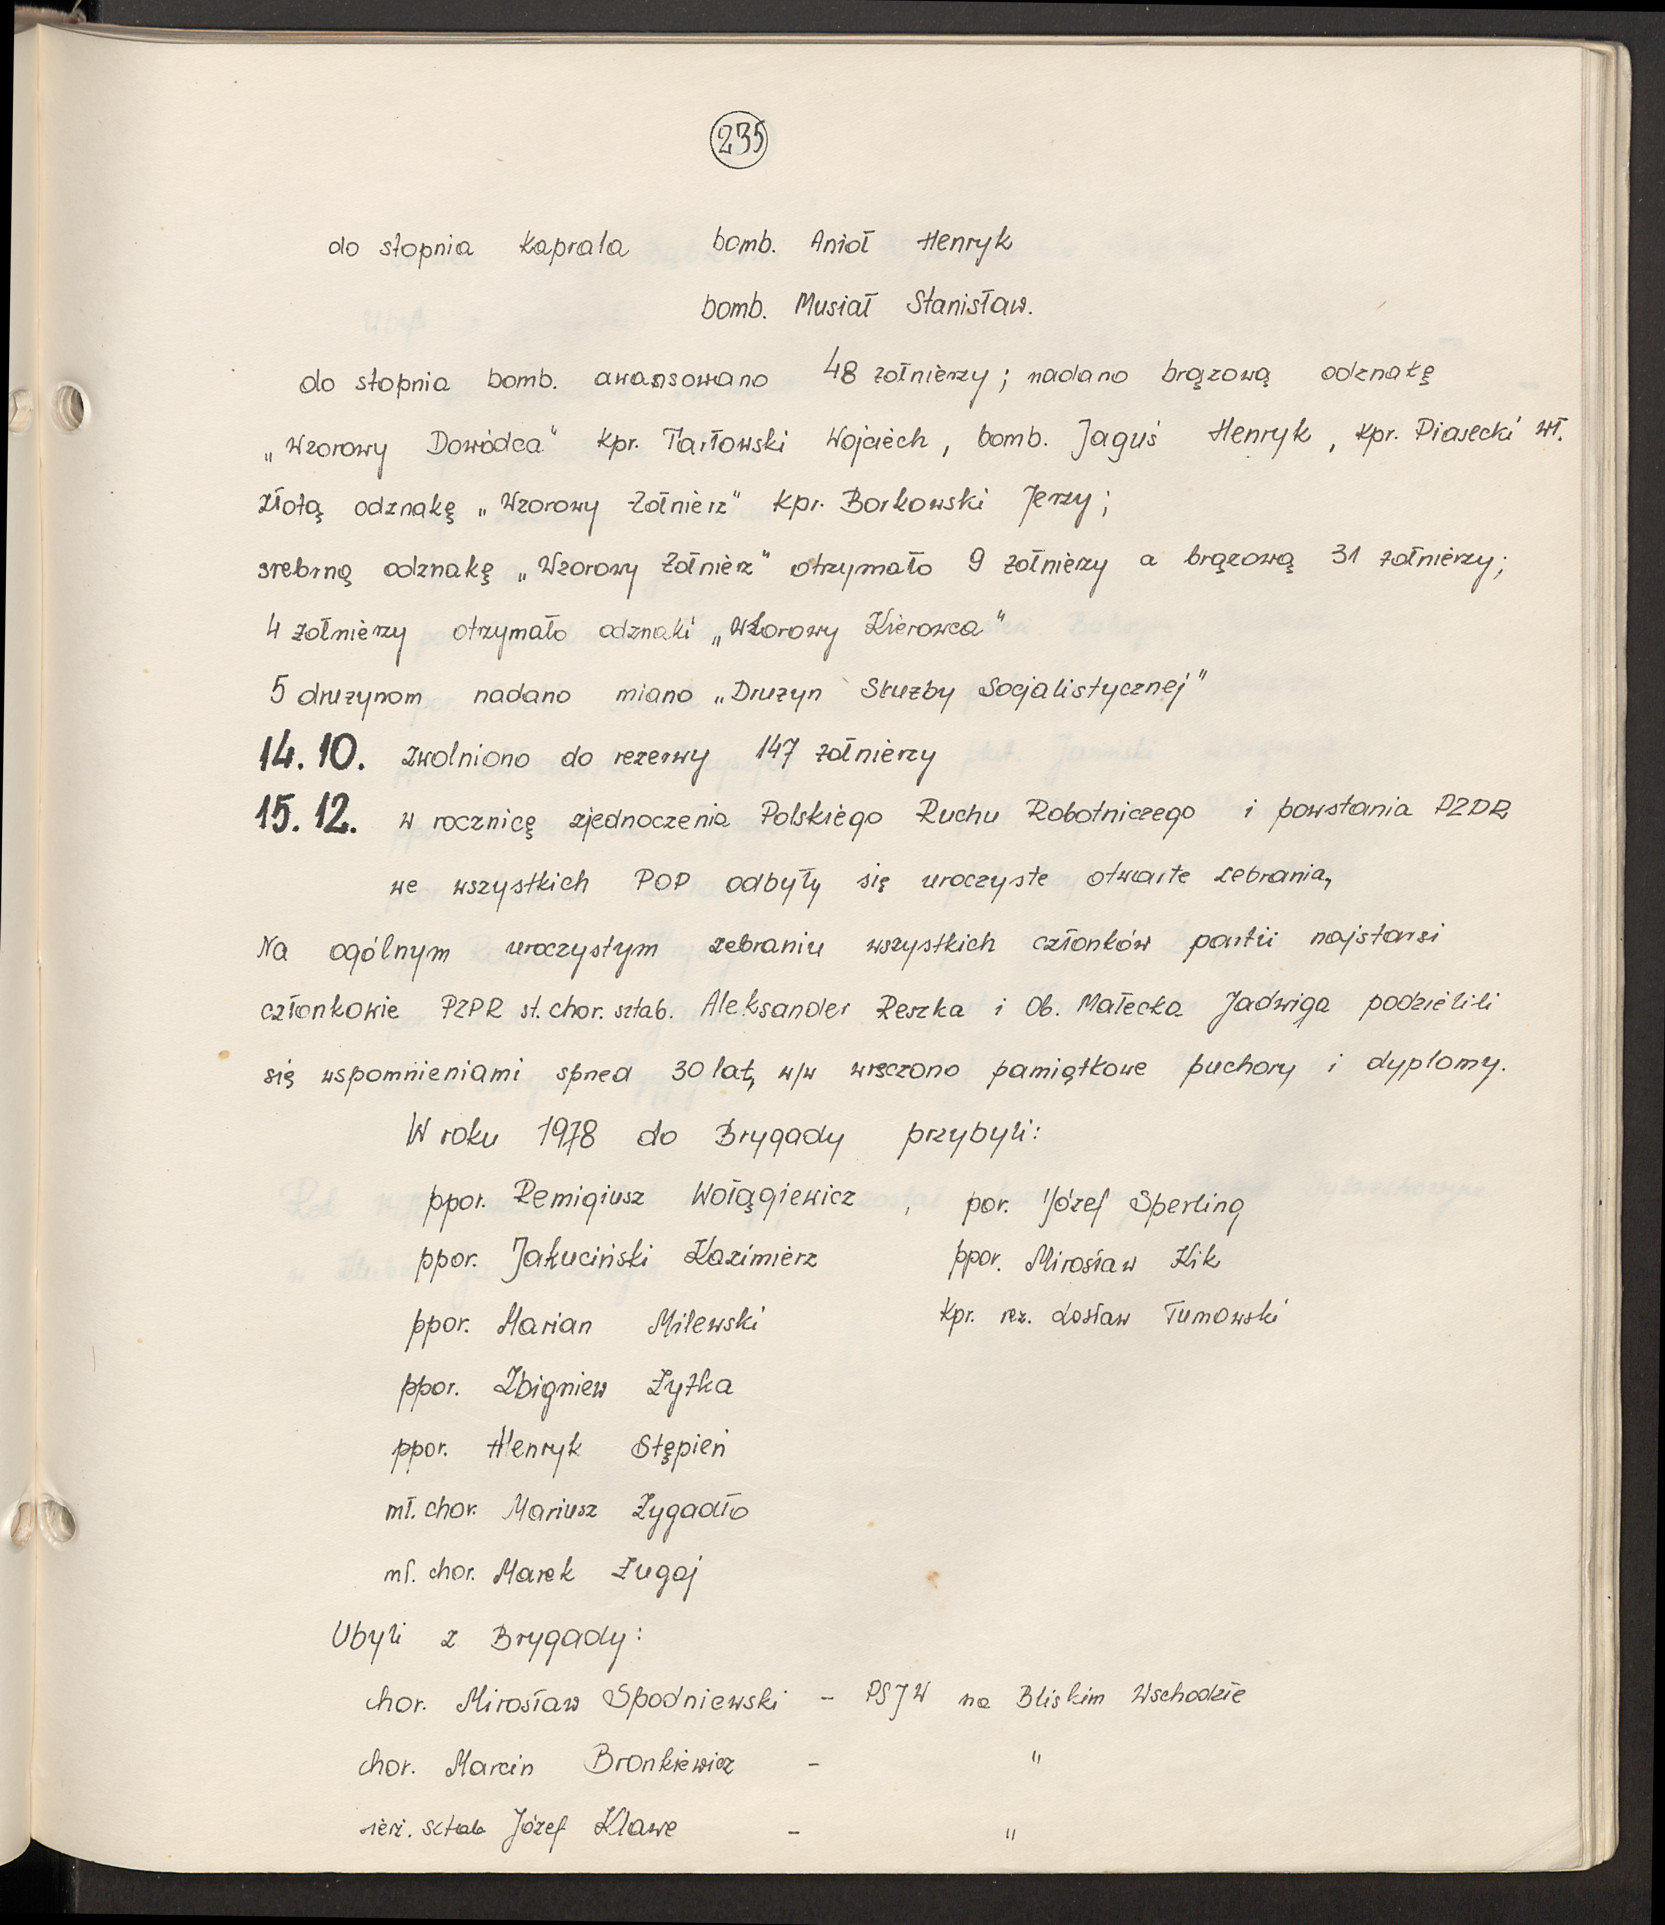 235
do stopnia kaprala bomb. Anioł Henryk
bomb. Musiał Stanisław.
do stopnia bomb. awansowano 48 żołnierzy; nadano brązową odznakę
„Wzorowy Dowódca" kpr. Tarłowski Wojciech, bomb. Jaguś Henryk, kpr. Piasecki Wł.
złotą odznakę „Wzorowy Żołnierz" kpr. Borkowski Jerzy;
srebrną odznakę „Wzorowy Żołnierz" otrzymało 9 żołnierzy a brązową 31 żołnierzy;
4 żołnierzy otrzymało odznaki „Wzorowy Kierowca"
5 drużynom nadano miano „Drużyn Służby Socjalistycznej"
14.10. zwolniono do rezerwy 147 żołnierzy
15.12. w rocznicę zjednoczenia Polskiego Ruchu Robotniczego i powstania PZPR
we wszystkich POP odbyły się uroczyste otwarte zebrania,
Na ogólnym uroczystym zebraniu wszystkich członków partii najstarsi
członkowie PZPR st. chor. sztab. Aleksander Reszka i Ob. Małecka Jadwiga podzielili
się wspomnieniami sprzed 30 lat, w/w wręczono pamiątkowe puchary i dyplomy.
W roku 1978 do Brygady przybyli:
ppor. Remigiusz Wołągiewicz, por. Józef Sperling
ppor. Jakuciński Kazimierz ppor. Mirosław Kik
ppor. Marian Milewski kpr. rez. Tumowski
ppor. Zbigniew Żyłka
ppor. Henryk Stępień
mł. chor. Mariusz Zygadło
mł. chor. Marek Żugaj
Ubyli z Brygady:
chor. Mirosław Spodniewski - PSJW na Bliskim Wschodzie
chor. Marcin Bronkiewicz - "
sierż. sztab Józef Klawe - "